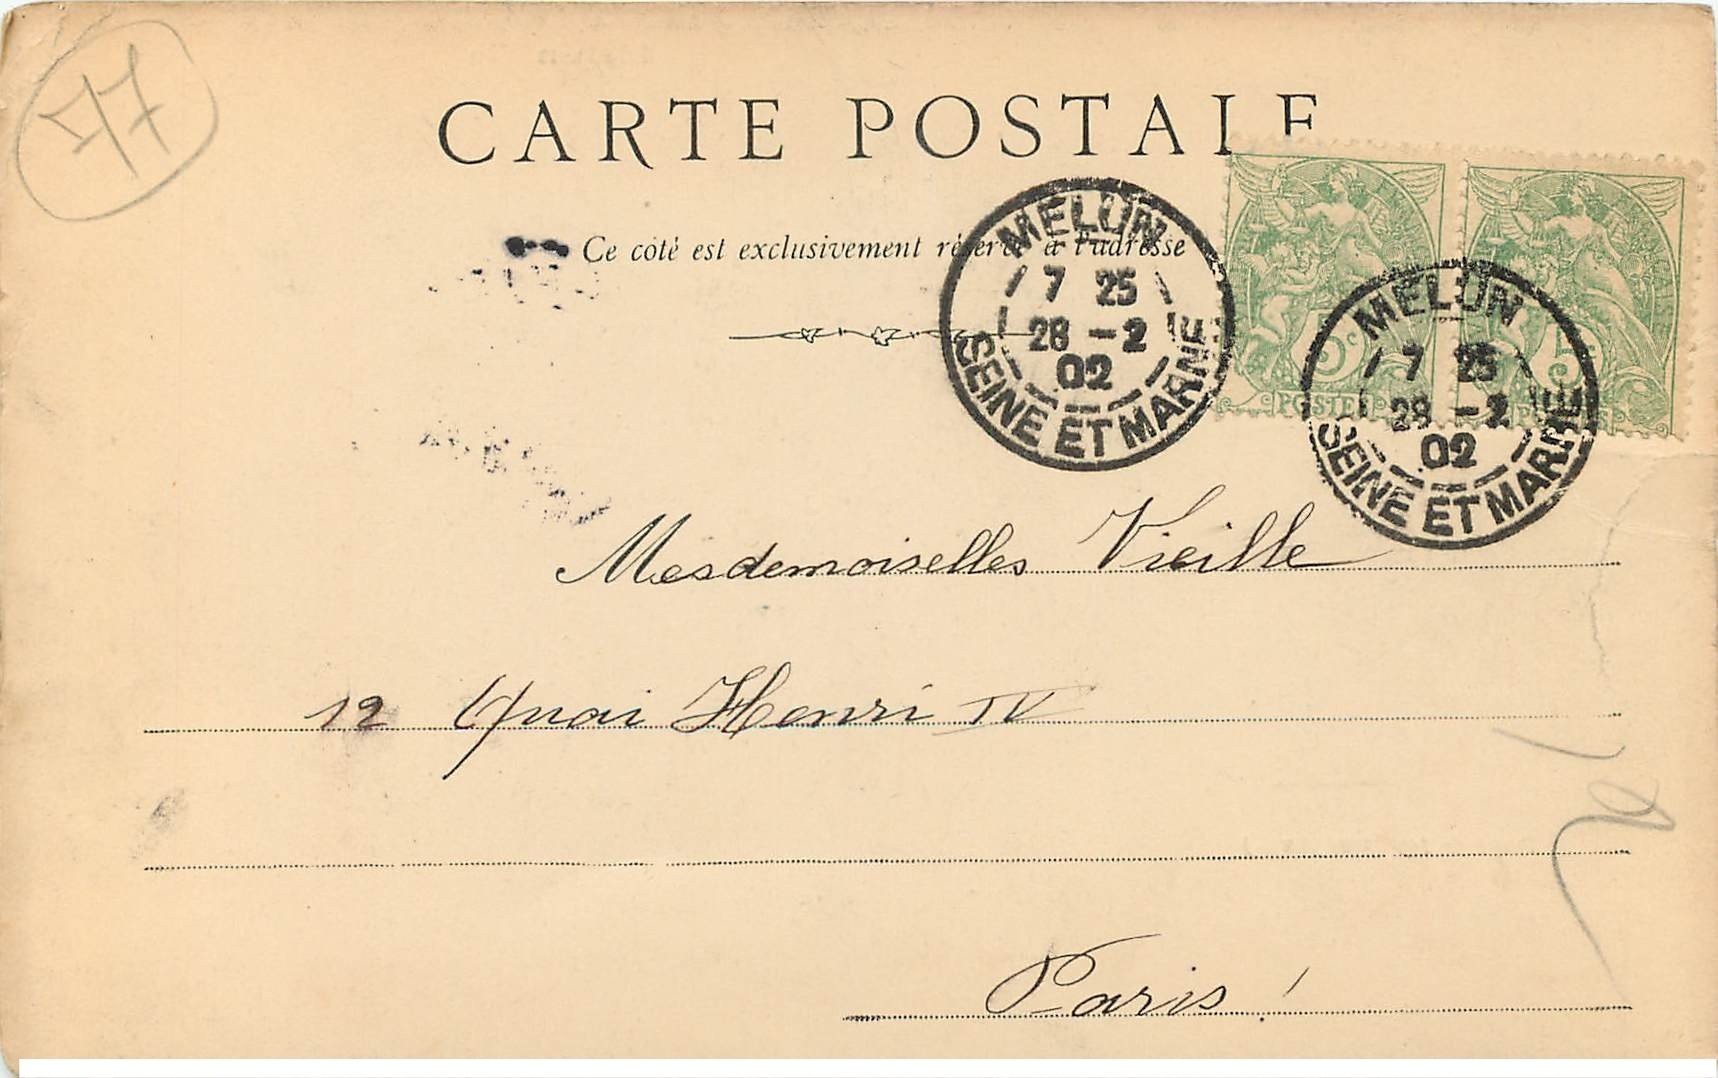 77
CARTE POSTALE
Ce côté est exclusivement réservé à l'adresse
MELUN
7 25
28 -2
02
SEINE ET MARNE
MELUN
7 25
28 -2
02
SEINE ET MARNE
5c
POSTES
5c
POSTES
Mesdemoiselles Vieille
12 Quai Henri IV
Paris !